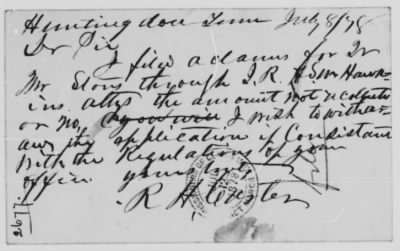 Huntingdon Tenn July 8/78
Dr Sir
I file a claim for Dr
Mr through I. R. & Hawk-
ins attys the amount not recolected
or no, I wish to withdr-
aw my application if Consistant
With the Regulations of your
office yours truly
R H
2677